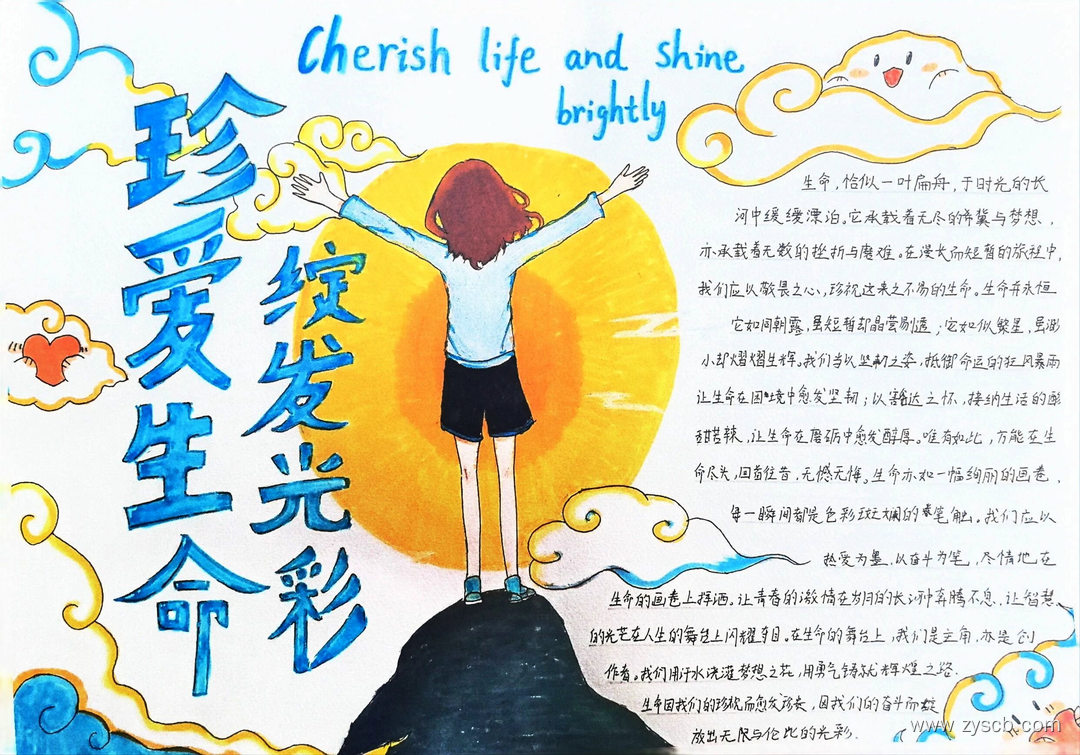 Cherish life and shine
brightly
珍爱生命
绽发光彩
生命，恰似一叶扁舟，于时光的长
河中缓缓漂泊。它承载着无尽的希冀与梦想，
亦承载着无数的挫折与磨难。在漫长而短暂的旅程中，
我们应以敬畏之心，珍视这来之不易的生命。生命并永恒
它如同朝露，虽短暂却晶莹剔透；它如似繁星，虽渺
小却熠熠生辉。我们当以坚韧之姿，抵御命运的狂风暴雨
让生命在困境中愈发坚韧；以豁达之怀，接纳生活的酸
甜苦辣，让生命在磨砺中愈发醇厚。唯有如此，方能在生
命尽头，回首往昔，无憾无悔。生命亦如一幅绚丽的画卷，
每一瞬间都是色彩斑斓的笔触。我们应以
热爱为墨，以奋斗为笔，尽情地在
生命的画卷上挥洒。让青春的激情在岁月的长河中奔腾不息，让智慧
的光芒在人生的舞台上闪耀夺目。在生命的舞台上，我们是主角，亦是创
作者。我们用汗水浇灌梦想之花，用勇气铸就辉煌之路.
生命因我们的珍视而愈发珍贵，因我们的奋斗而绽
放出无限与伦比的光彩.
www.zyscb.com